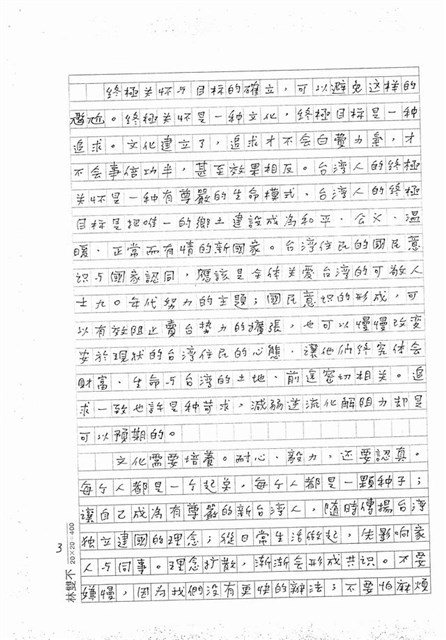 終極关怀与目标的確立，可以避免这样的
尷尬。終極关怀是一种文化，終極目标是一种
追求。文化建立了，追求才不会白費力氣，才
不会事倍功半，甚至效果相反。台湾人的終極
关怀是一种有尊嚴的生命模式。台湾人的終極
目标是把唯一的鄉土建設成為和平、公义、温
暖、正常而有情的新國家。台湾住民的國民意
识与國家認同，應該是全体关爱台湾的可敬人
士九〇年代努力的主題；國民意识的形成，可
以有效阻止賣台势力的擴張，也可以慢慢改变
安於現狀的台湾住民的心態，讓他们終究体会
財富、生命与台湾的土地、前途密切相关。追
求一致也許是种苛求，減弱逆流化解阻力却是
可以预期的。
文化需要培養。耐心、毅力，还要認真。
每个人都是一个起点，每个人都是一顆种子；
讓自己成為有尊嚴的新台湾人，随時傳揚台湾
独立建國的理念；從日常生活做起，先影响家
人与同事。理念扩散，漸漸会形成共识。不要
嫌慢，因为我們没有更快的辦法；不要怕麻煩
3
20×20=400
林雙不